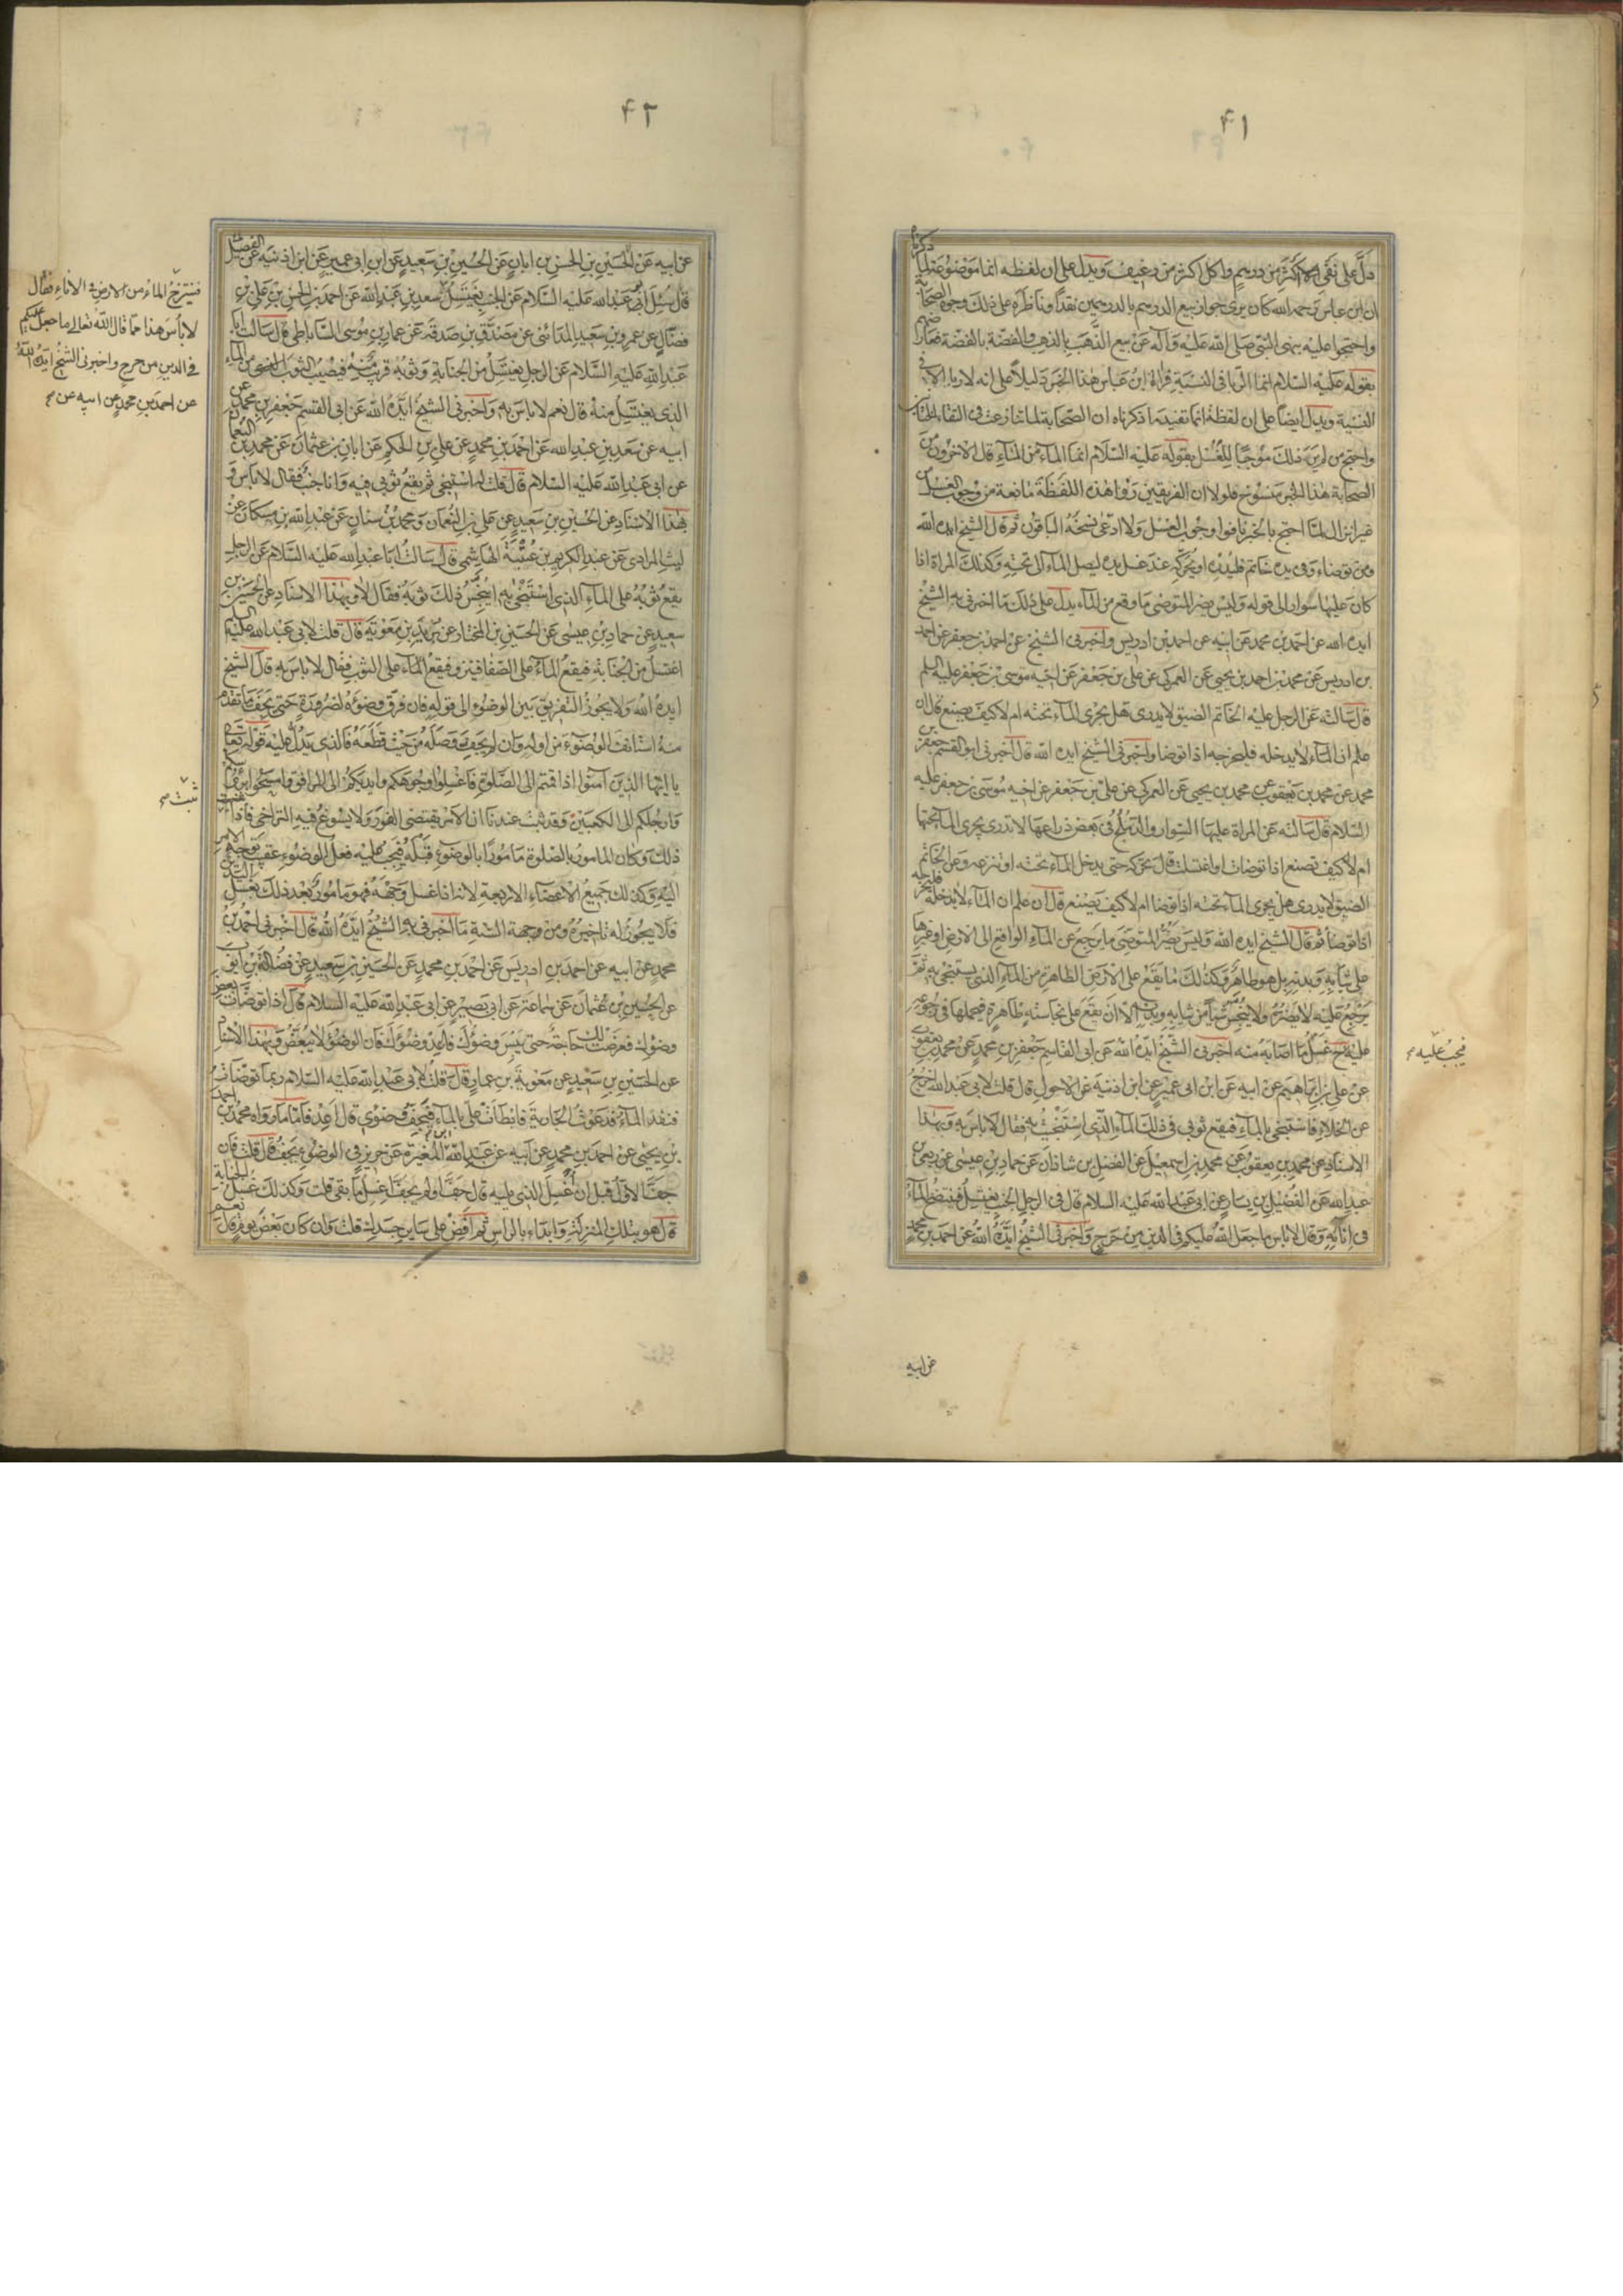 ۴۱
ذكرنا
دل على نفى اكل اكثر من درهم واكل اكثر من رغيف ويدل على ان لفظه انما موضوعة لما
ان ابن عباس رحمه الله كان يرى جواز بيع الدرهم بالدرهمين نقدا وناظره على ذلك وجوه الصحابة
واحتجوا عليه بنهى النبى صلى الله عليه وآله عن بيع الذهب بالذهب والفضة بالفضة فعارضهم
بقوله عليه السلام انما الربا فى النسية فراى ابن عباس هذا الخبر دليلا على انه لا ربا الا فى
النسية ويدل ايضا على ان لفظة انما تفيد ما ذكرناه ان الصحابة لما تنازعت فى التقاء الختانين
واحتج من لم ير ذلك موجبا للغسل بقوله عليه السلام انما الماء من الماء قال الاخرون من
الصحابة هذا الخبر منسوخ فلولا ان الفريقين راوا هذه اللفظة مانعة من وجوب الغسل من
غير انزال لما احتج بالخبر نافوا وجوب الغسل ولا ادعى نسخه الباقون ثم قال الشيخ ايده الله
ومن توضاء وفى يده خاتم فليدره او يحركه عند غسل يده ليصل الماء الى تحته وكذلك المراة اذا
كان عليها سوار الى قوله وليس يضر المتوضى ما وقع من الماء يدل على ذلك ما اخبرنى به الشيخ
ايده الله عن احمد بن محمد عن ابيه عن احمد بن ادريس واخبرنى الشيخ عن احمد بن جعفر عن احمد
بن ادريس عن محمد بن احمد بن يحيى عن العمركى عن على بن جعفر عن اخيه موسى بن جعفر عليه السلم
قال سالته عن الرجل عليه الخاتم الضيق لا يدرى هل يجرى الماء تحته ام لا كيف يصنع قال ان
علم ان الماء لا يدخله فليخرجه اذا توضا واخبرنى الشيخ ايده الله قال اخبرنى ابو القسم جعفر بن
محمد عن محمد بن يعقوب عن محمد بن يحيى عن العمركى عن على بن جعفر عن اخيه موسى بن جعفر عليه
السلام قال سالته عن المراة عليها السوار والدملج فى بعض ذراعها لا تدرى يجرى الماء تحتها
ام لا كيف تصنع اذا توضات او اغتسلت قال تحركه حتى يدخل الماء تحته او تنزعه وعن الخاتم
الضيق لا يدرى هل يجرى الماء تحته اذا توضا ام لا كيف يصنع قال ان علم ان الماء لا يدخله فليخرجه
اذا توضا ثم قال الشيخ ايده الله وليس يضر المتوضى ما يرجع عن الماء الواقع الى الارض او غيرها
على ثيابه وبدنه بل هو طاهر وكذلك ما يقع على الارض الطاهرة من الماء الذى يستنجى به ثم
يرجع عليه لا يضره ولا ينجس شيا من ثيابه وبدنه الا ان يقع على نجاسة ظاهرة فيحملها فى رجوعه
عليه ح غسل ما اصابه منه اخبرنى الشيخ ايده الله عن ابى القاسم جعفر بن محمد عن محمد بن يعقوب
عن على بن ابراهيم عن ابيه عن ابن ابى عمير عن ابن اذنية عن الاحول قال قلت لابى عبد الله اخرج
عن الخلاء فاستنجى بالماء فيقع ثوبى فى ذلك الماء الذى استنجيت به فقال لا باس به وبهذا
الاسناد عن محمد بن يعقوب عن محمد بن اسمعيل عن الفضل بن شاذان عن حماد بن عيسى عن ربعى بن
عبد الله عن الفضيل بن يسار عن ابى عبد الله عليه السلام قال فى الرجل الجنب يغتسل فينتضح الماء
فى انائه وقال لا باس ما جعل الله عليكم فى الدين من حرج واخبرنى الشيخ ايده الله عن احمد بن محمد
فيجب عليه
عن ابيه
۴۲
عن ابيه عن الحسين بن الحسن بن ابان عن الحسين بن سعيد عن ابن ابى عمير عن ابن اذنية عن الفضيل
قال سئل ابى عبد الله عليه السلام عن الجنب يغتسل سعد بن عبد الله عن احمد بن الحسن بن على بن
فضال عن عمرو بن سعيد المدائنى عن مصدق بن صدقة عن عمار بن موسى الساباطى قال سالت ابا
عبد الله عليه السلام عن الرجل يغتسل من الجنابة وثوبه قريب منه فيصيب الثوب من الماء
الذى يغتسل منه قال نعم لا باس به واخبرنى الشيخ ايده الله عن ابى القسم جعفر بن محمد عن
ابيه عن سعد بن عبد الله عن احمد بن محمد عن على بن الحكم عن ابان بن عثمان عن محمد بن النعمان
عن ابى عبد الله عليه السلام قال قلت له استنجى ثم يقع ثوبى فيه وانا جنب فقال لا باس و
بهذا الاسناد عن الحسين بن سعيد عن على بن النعمان ومحمد بن سنان عن عبد الله بن مسكان عن
ليث المرادى عن عبد الكريم بن عتبة الهاشمى قال سالت ابا عبد الله عليه السلام عن الرجل
يقع ثوبه على الماء الذى استنجى به اينجس ذلك ثوبه فقال لا وبهذا الاسناد عن الحسين بن
سعيد عن حماد بن عيسى عن الحسين بن المختار عن بريد بن معوية قال قلت لابى عبد الله عليه السلم
اغتسل من الجنابة فيقع الماء على الصفا فينزو فيقع الماء على الثوب فقال لا باس به قال الشيخ
ايده الله ولا يجوز التفريق بين الوضوء الى قوله فان فرق وضوءه لضرورة حتى يجف ما تقدم
منه استانف الوضوء من اوله وان لم يجف وصله من حيث قطعه فالذى يدل عليه قوله تعالى
يا ايها الذين آمنوا اذا قمتم الى الصلوة فاغسلوا وجوهكم وايديكم الى المرافق وامسحوا برؤسكم
وارجلكم الى الكعبين وقد ثبت عندنا ان الامر يقتضى الفور ولا يسوغ فيه التراخى فاذا
ذلك وكان المامور بالصلوة مامورا بالوضوء قبله فيجب عليه فعل الوضوء عقيب توجه الامر
اليه وكذلك جميع الاعضاء الاربعة لانه اذا غسل وجهه فهو مامور بعد ذلك بغسل اليدين
فلا يجوز له تاخيره ومن وجهة السنة ما اخبرنى به الشيخ ايده الله قال اخبرنى احمد بن
محمد عن ابيه عن احمد بن ادريس عن احمد بن محمد عن الحسين بن سعيد عن فضالة بن ايوب
عن الحسين بن عثمان عن سماعة عن ابى بصير عن ابى عبد الله عليه السلام قال اذا توضات بعض
وضوءك فعرضت لك حاجة حتى يبس وضوءك فاعد وضوءك فان الوضوء لا يبعض وبهذا الاسناد
عن الحسين بن سعيد عن معوية بن عمار قال قلت لابى عبد الله عليه السلام ربما توضات
فنفد الماء فدعوت الجارية فابطات على بالماء فيجف وضوئى قال اعد فاما ما رواه محمد بن احمد
بن يحيى عن احمد بن محمد عن ابيه عن عبد الله بن المغيرة عن حريز فى الوضوء يجف قال قلت فان
جف الاول قبل ان اغسل الذى يليه قال جف او لم يجف اغسل ما بقى قلت وكذلك غسل الجنابة
قال هو بتلك المنزلة وابداء بالراس ثم افض على ساير جسدك قلت وان كان بعض يوم قال نعم
فينتزخ الماء من الارض فى الاناء فقال
لا باس هذا مما قال الله تعالى ما جعل عليكم
فى الدين من حرج واخبرنى الشيخ ايده الله
عن احمد بن محمد عن ابيه عن
ثبت